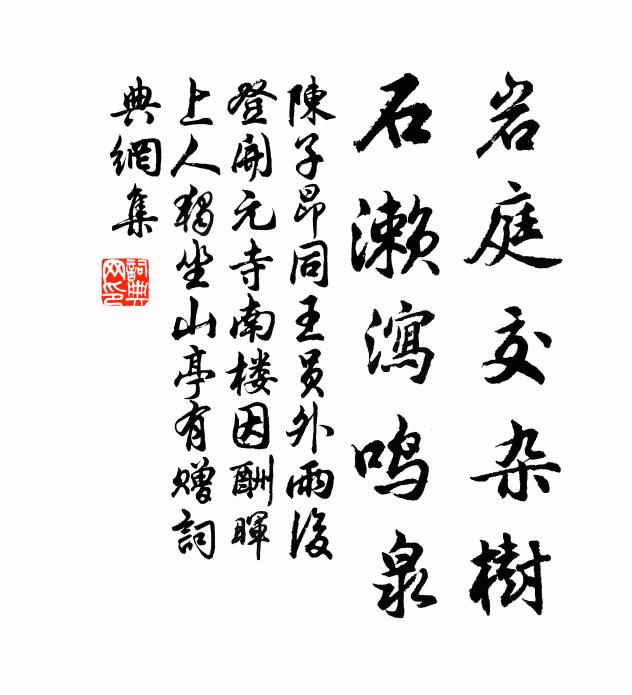 岩庭交杂樹
石濑瀉鸣泉
陳子昂同王員外雨後
登開元寺南楼因酬暉
上人獨坐山亭有赠詞
典網集
詞典
网印